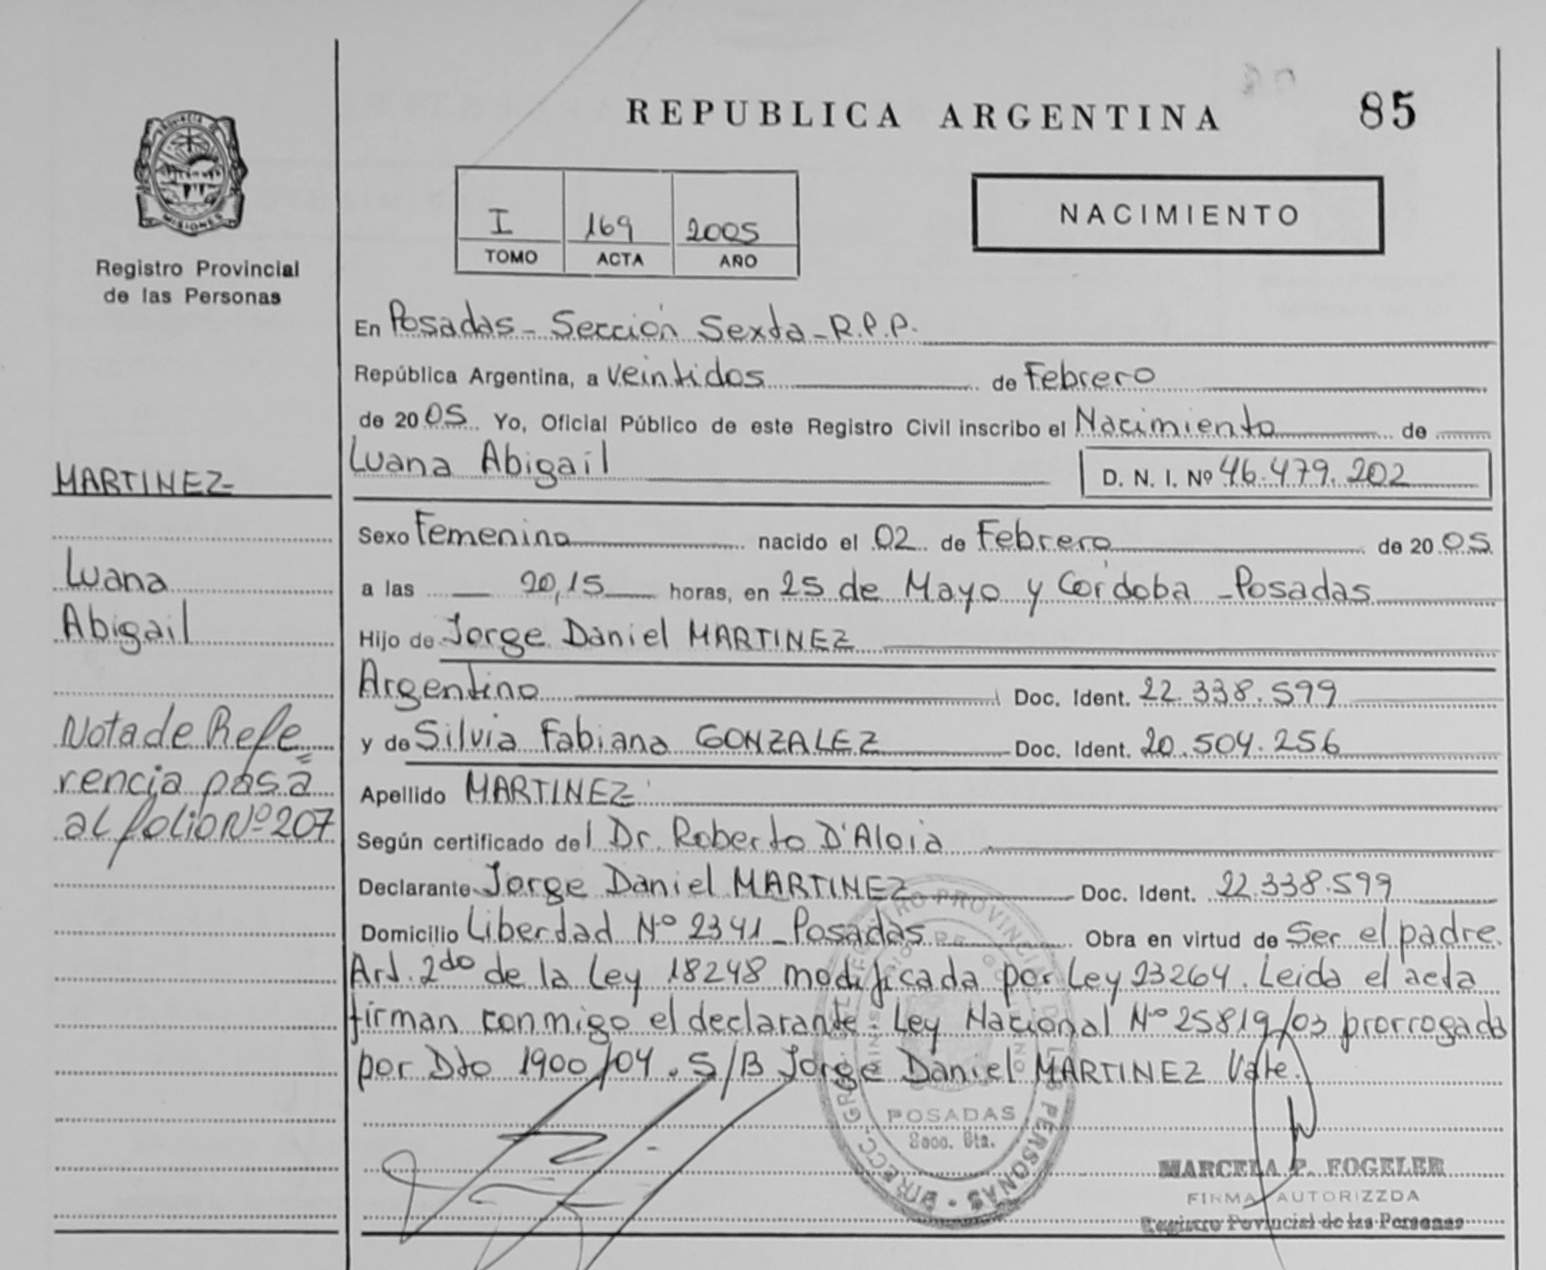 REPUBLICA ARGENTINA
85
PROVINCIA DE
MISIONES
Registro Provincial
de las Personas
I 169 2005
TOMO ACTA AÑO
NACIMIENTO
En Posadas - Sección Sexta - R.P.P.
República Argentina, a veintidos de Febrero
de 2005. Yo, Oficial Público de este Registro Civil inscribo el Nacimiento de
Luana Abigail
D. N. I. Nº 46.479.202
MARTINEZ
Luana
Abigail
Nota de Refe=
rencia pasa
al folio Nº 207
Sexo Femenino nacido el 02 de Febrero de 2005
a las 20,15 horas, en 25 de Mayo y Córdoba - Posadas
Hijo de Jorge Daniel MARTINEZ
Argentino Doc. Ident. 22.338.599
y de Silvia Fabiana GONZALEZ Doc. Ident. 20.504.256
Apellido MARTINEZ
Según certificado del Dr. Roberto D'Aloia
Declarante Jorge Daniel MARTINEZ Doc. Ident. 22.338.599
Domicilio Libertad Nº 2341 - Posadas Obra en virtud de Ser el padre.
Art. 2do de la Ley 18248 modificada por Ley 23264. Leida el acta
firman conmigo el declarante Ley Nacional Nº 25819/03 prorrogada
por Dto 1900/04. S/B Jorge Daniel MARTINEZ Vale.
POSADAS
Secc. 6ta.
MARCELA P. FOGELER
FIRMA AUTORIZZDA
Registro Povincial de las Personas